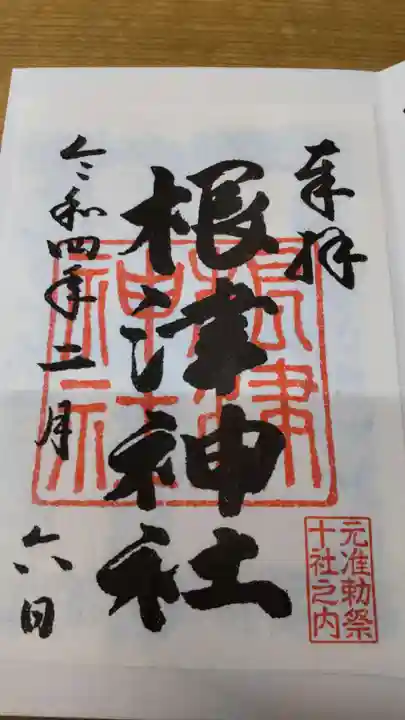 奉拝
根津神社
令和四年二月六日
根津
神社
元准勅祭
十社之内